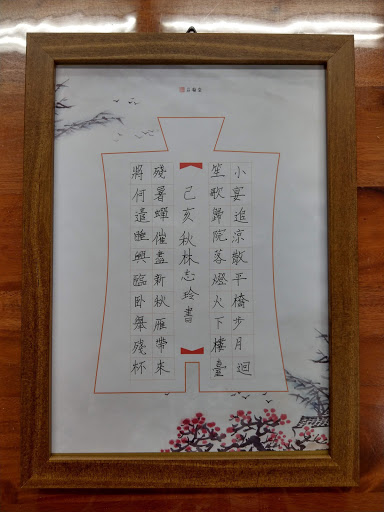 小宴追涼散平橋步月迴
笙歌歸院落燈火下樓臺
己亥秋林志玲書
殘暑蟬催盡新秋雁帶來
將何遣睡興臨臥舉殘杯